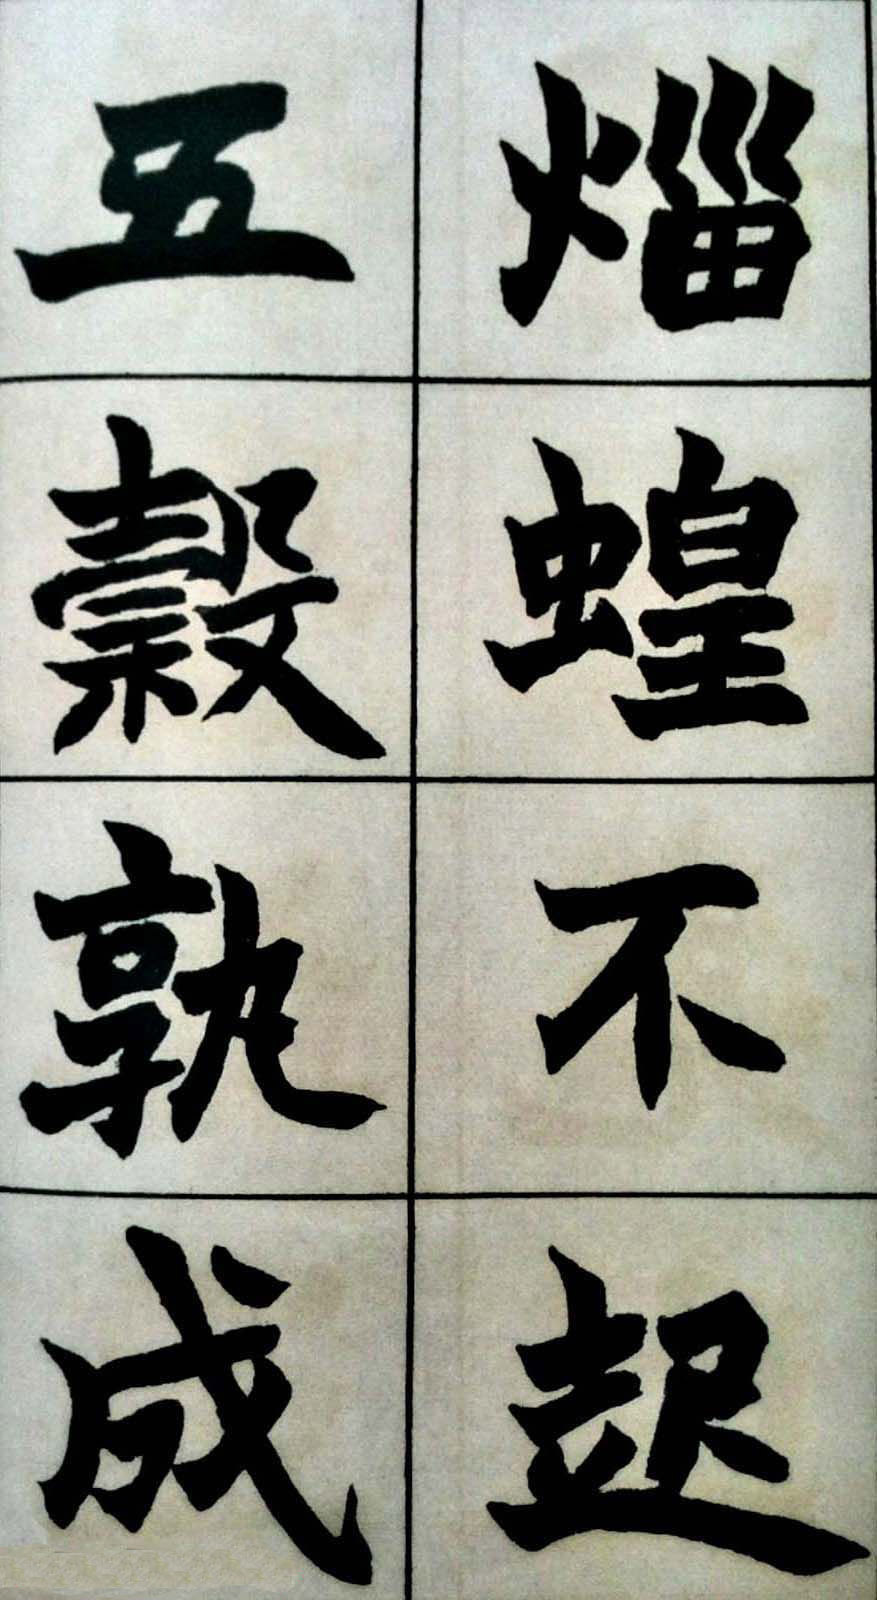 𤉣蝗不起
五穀孰成